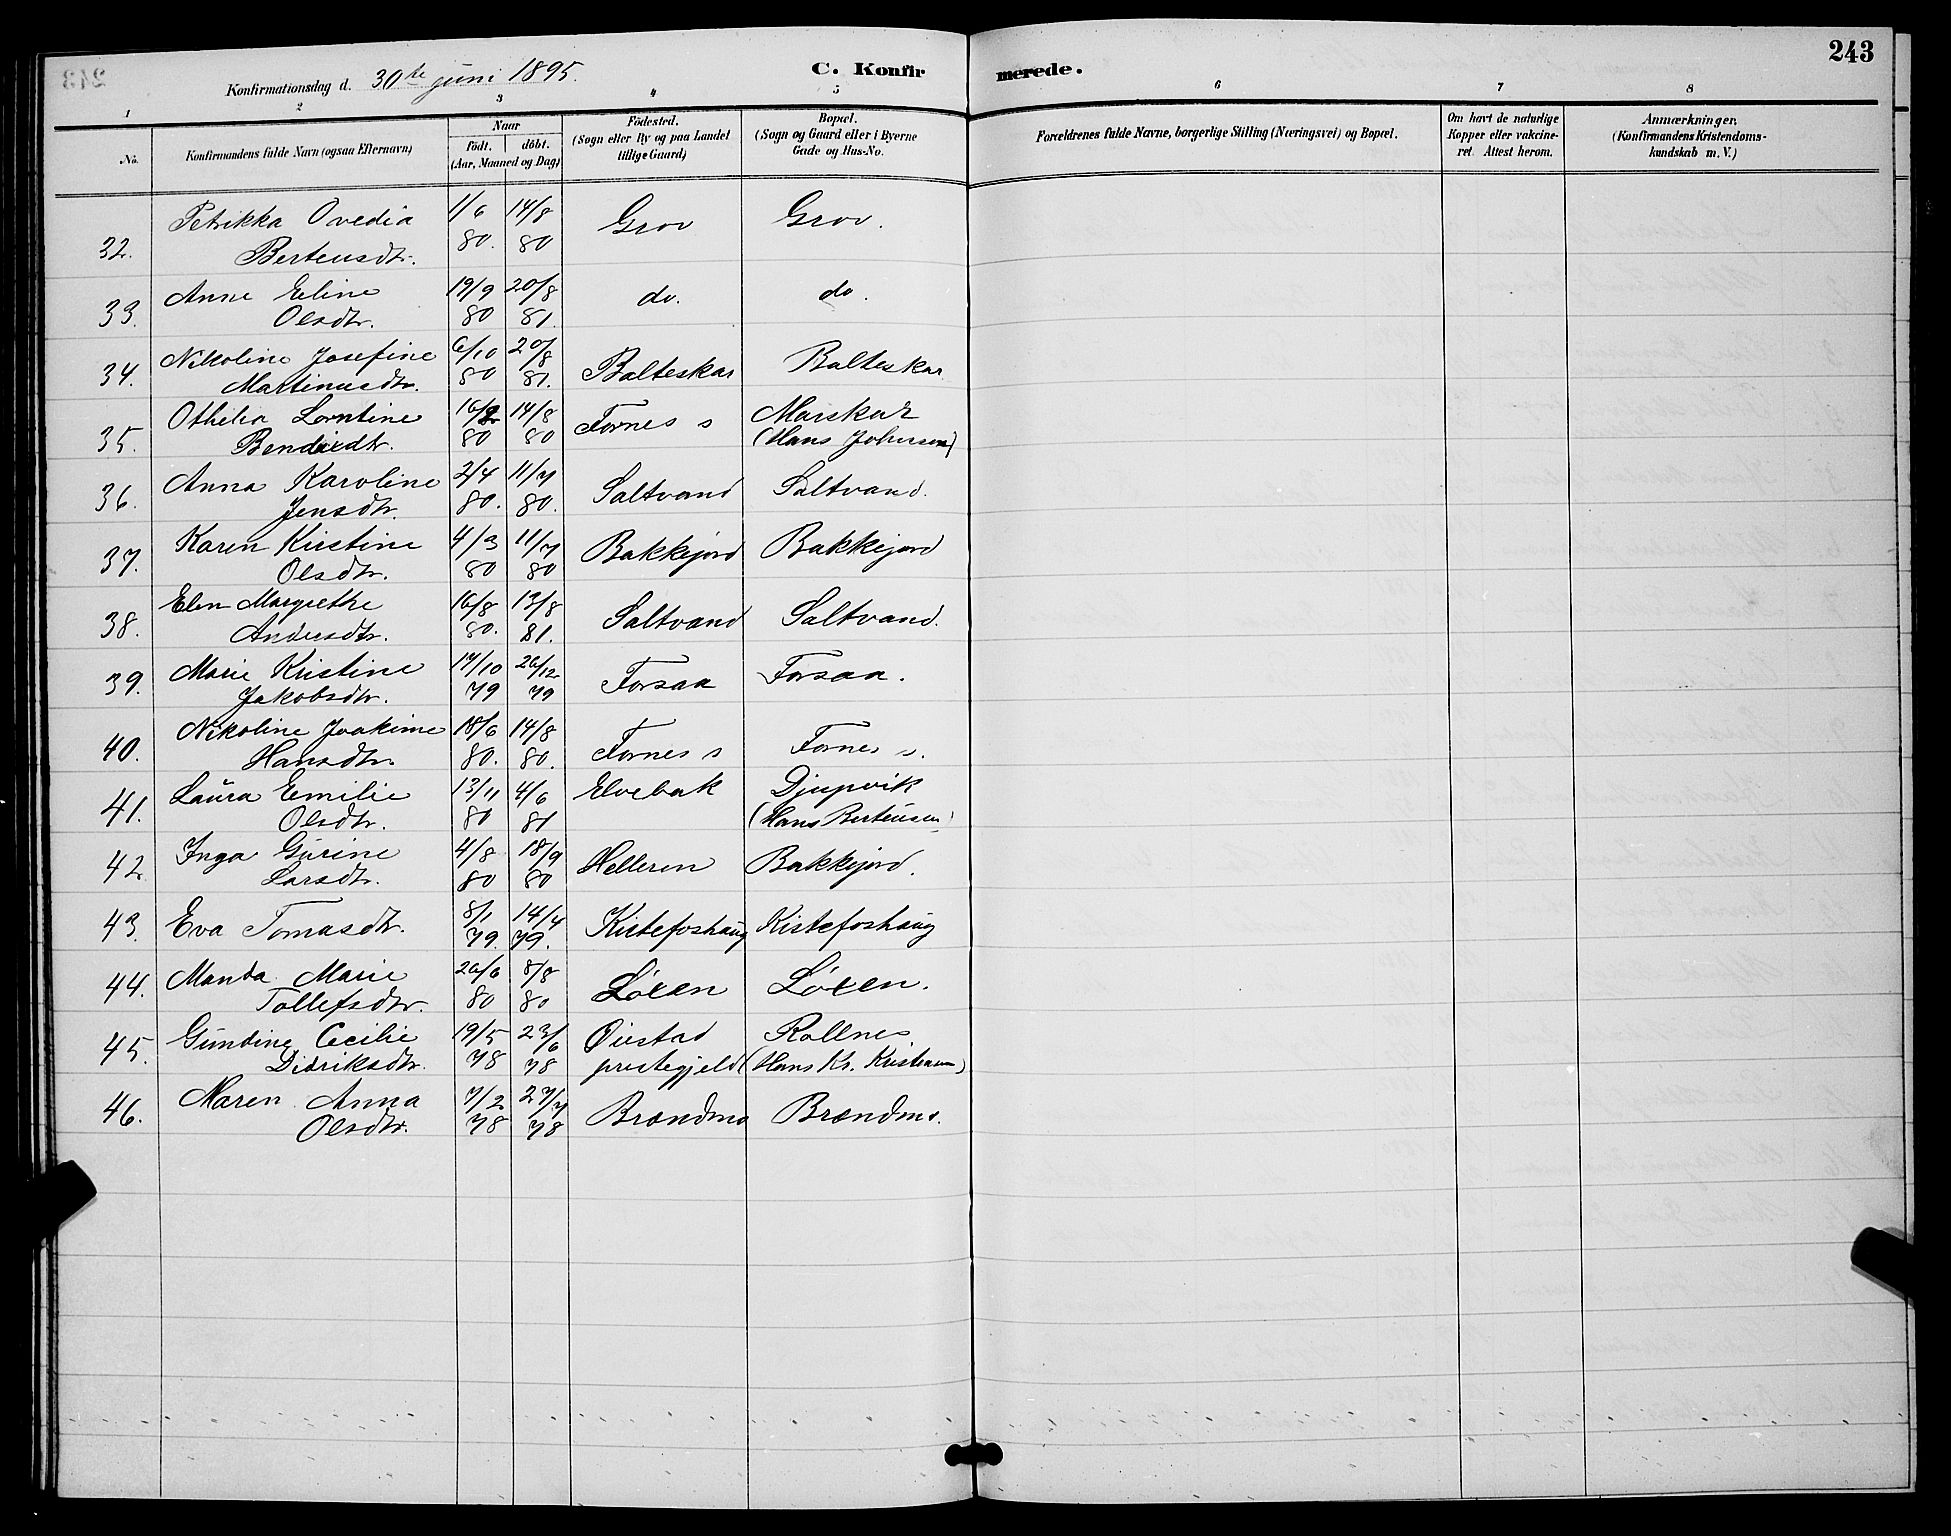 243
Konfirmationsdag d. 30te juni 1895.
C. Konfirmerede.
1 2 3 4 5 6 7 8
No.
Konfirmandens fulde Navn (ogsaa Efternavn)
Naar
födt. döbt.
(Aar, Maaned og Dag)
Födested.
(Sogn eller By og paa Landet
tillige Gaard)
Bopæl.
(Sogn og Gaard eller i Byerne
Gade og Hus-No.
Forældrenes fulde Navne, borgerlige Stilling (Næringsvei) og Bopæl.
Om havt de naturlige
Kopper eller vakcine-
ret. Attest herom.
Anmærkninger.
(Konfirmandens Kristendoms-
kundskab m. V.)
Petrikka Ovedia 1/6 14/8 Grov Grov.
32. Berteusdtr. 80. 80
Anne Eline 19/9 20/8 do. do.
33. Olsdtr. 80 81.
Nikoline Josefine 6/10 20/8 Balteskar Balteskar
34. Martinusdtr. 80 81.
Othelia Lorntine 14/8 Fornes s Marskar
35. Bendixdtr. 80 80 (Hans Johnsen)
Anna Karoline 2/4 11/7 Saltvand Saltvand.
36. Jensdtr. 80. 80.
Karen Kirstine 4/3 11/7 Bakkejord Bakkejord
37. Olsdtr. 80 80
Elen Margrethe 16/8 13/8 Saltvand Saltvand.
38. Andersdtr. 80. 81.
Marie Kristine 14/10 26/12 Forsaa Forsaa.
39. Jakobsdtr. 79 79
Nikoline Joakime 18/6 14/8 Fornes s Fornes s.
40. Hansdtr. 80. 80.
Laura Emilie 13/11 4/6 Elvebak Djupvik
41. Olsdtr. 80 81 (Hans Berteusen)
Inga Gurine 4/8 18/9 Helleren Bakkejord.
42. Larsdtr. 80 80
43. Eva Tomasdtr. 8/1 14/4 Kistefoshaug Kistefoshaug
79. 79.
Manda Marie 26/6 8/8 Løxen Løxen.
44. Tollefsdtr. 80 80
Gundine Cecilie 19/5 23/6 Øiestad Rollnes
45. Didriksdtr. 78 78 prestegjeld (Hans Kr. Kristensen)
Maren Anna 7/2 27/7 Brandmo Brandmo.
46. Olsdtr. 78 78